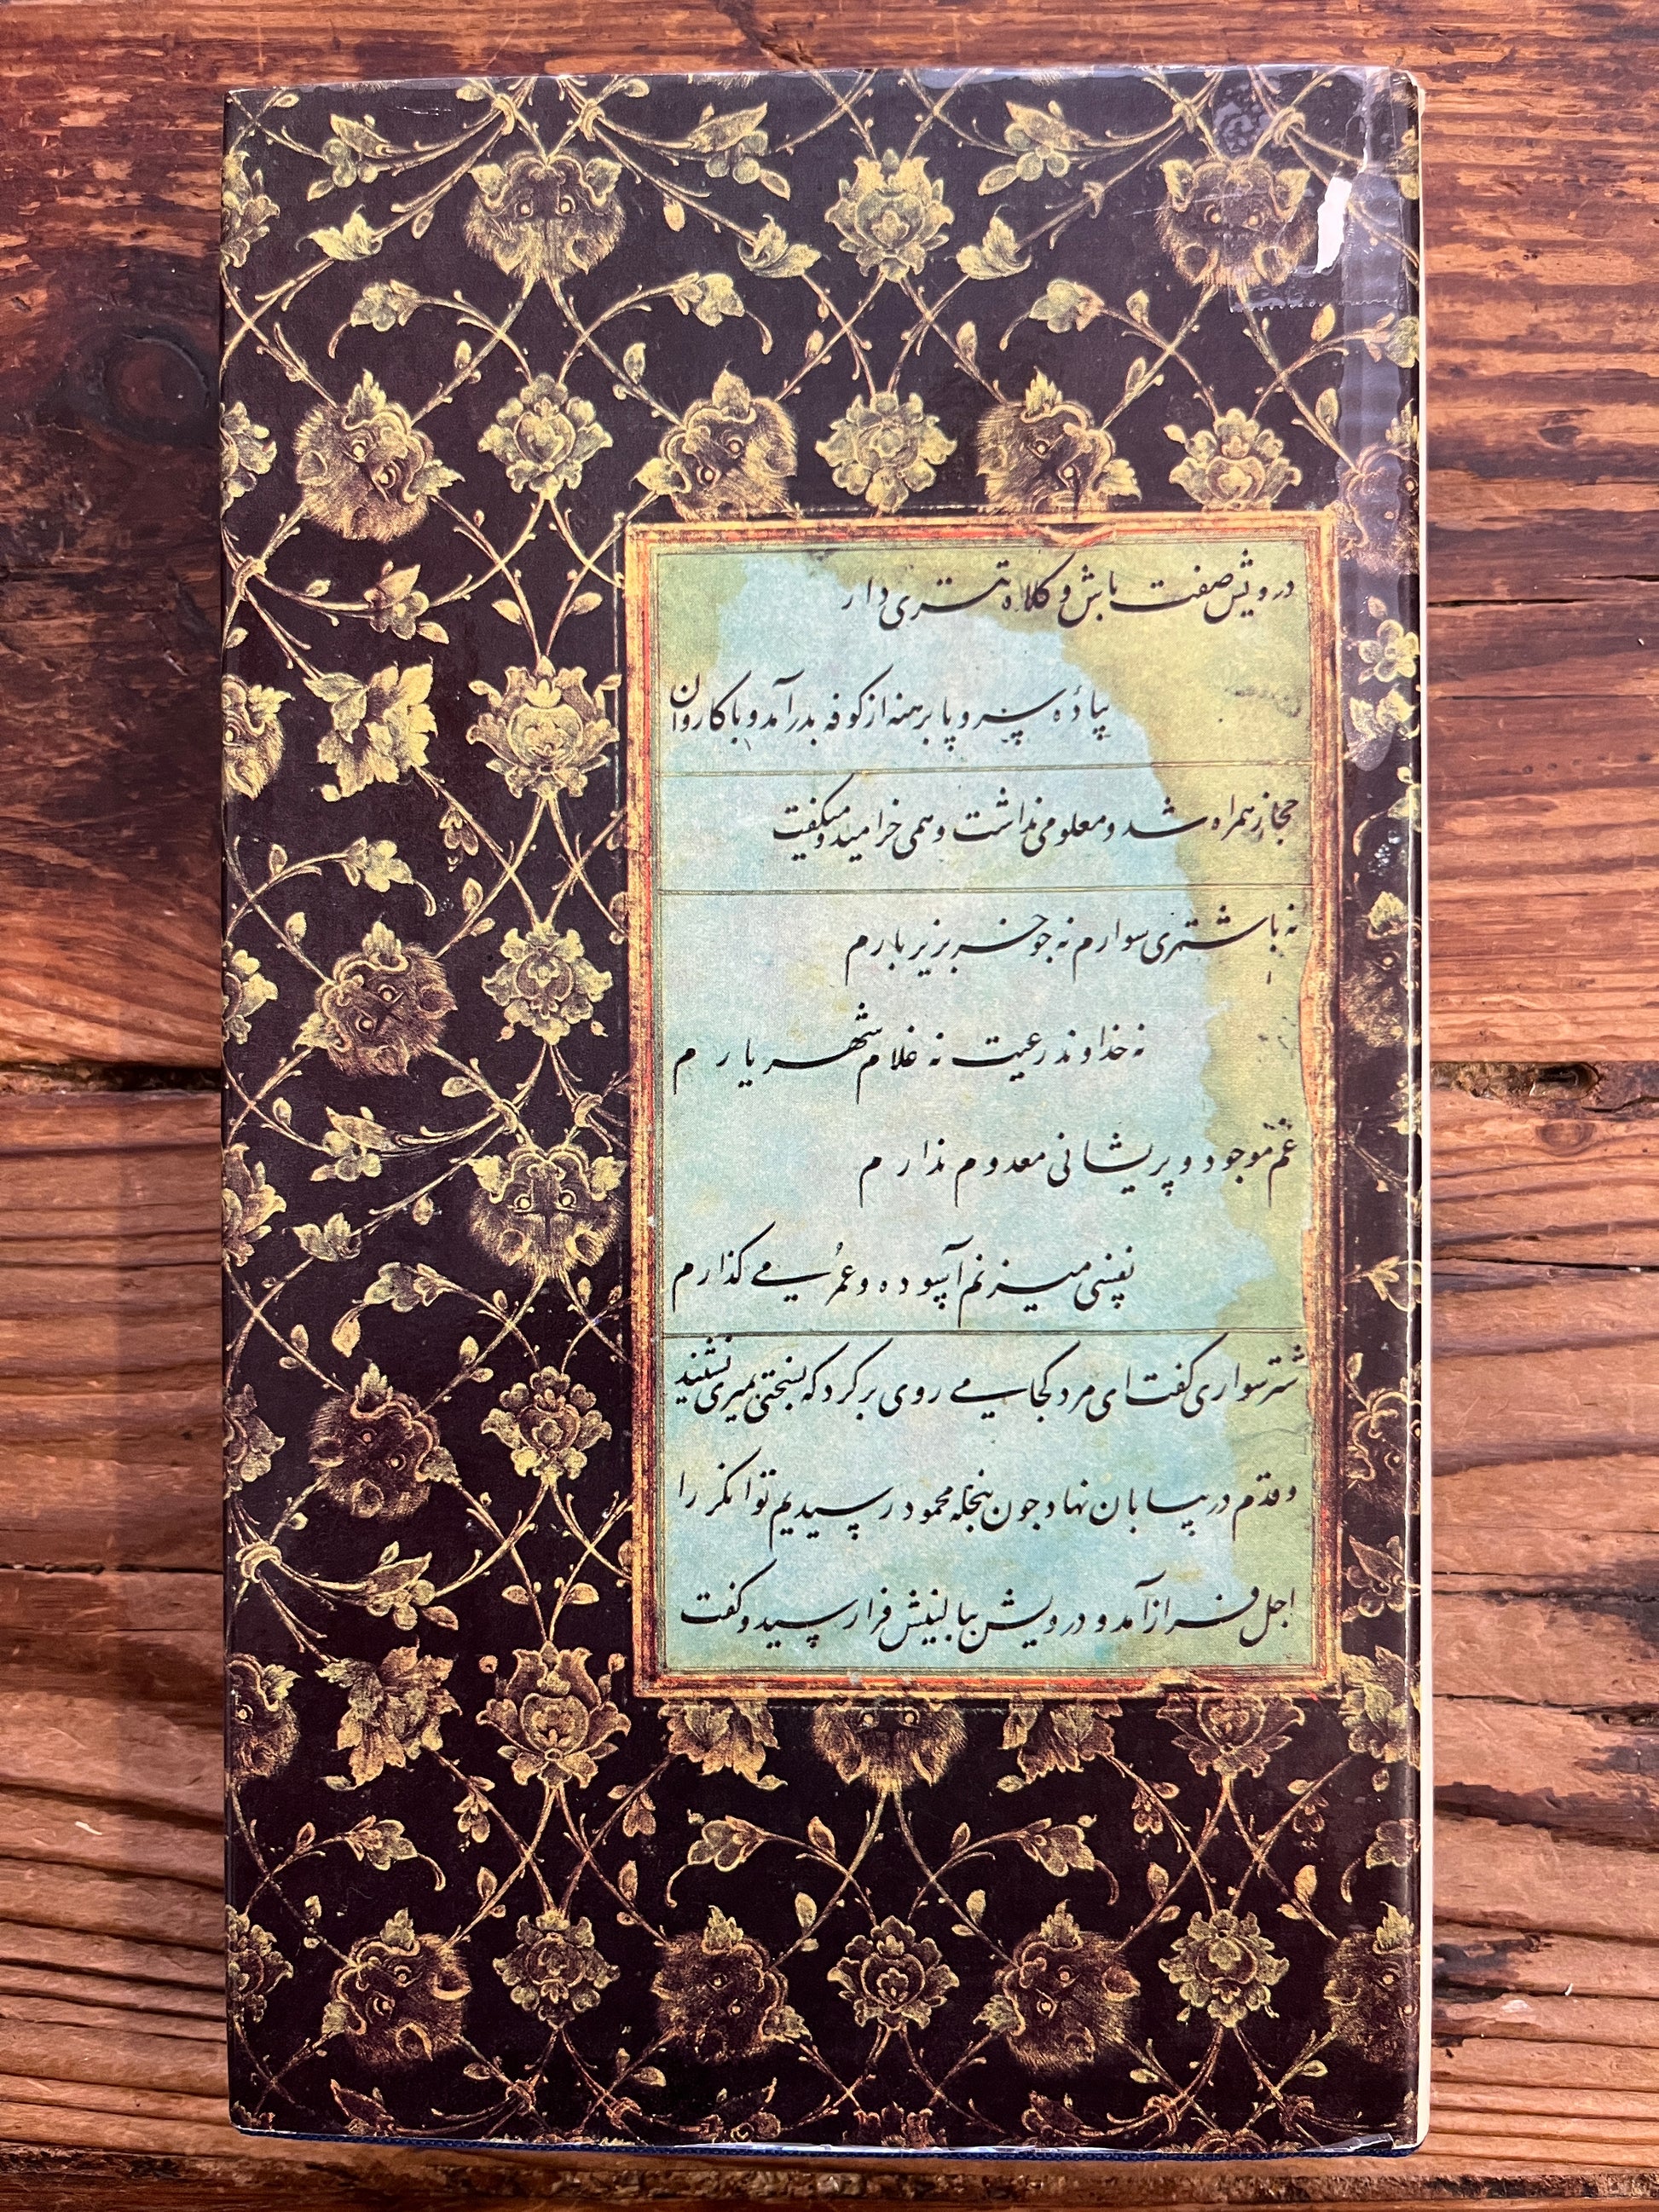 درویش صفت باش و کلاه تتری دار
پیاده سر و پا برهنه از کوفه بدر آمد و با کاروان
حجاز همراه شد و معلومی نداشت و همی خرامید و میگفت
نه باشتری سوارم نه جو خر بزیر بارم
نه خداوند رعیت نه غلام شهریارم
غم موجود و پریشانی معدوم ندارم
نفسی میزنم آسوده و عمری می گذارم
شتر سواری گفت ای مرد کجا می روی برگرد که بسختی بمیری نشنید
و قدم در بیابان نهاد جون بنخله محمود رسیدیم توانگر را
اجل فراز آمد و درویش ببالینش فرا رسید و گفت